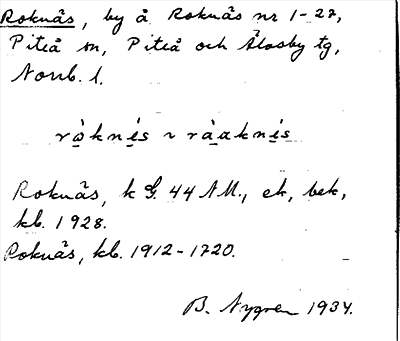 Roknäs, by å Roknäs nr 1-27,
Piteå sn, Piteå och Älvsby tg,
Norrb. l.
ròknis ~ ràaknis
Roknäs, k G. 44 NM., ek, bek,
kb. 1928.
Roknäs, kb. 1912-1720.
B. Nygren 1934.